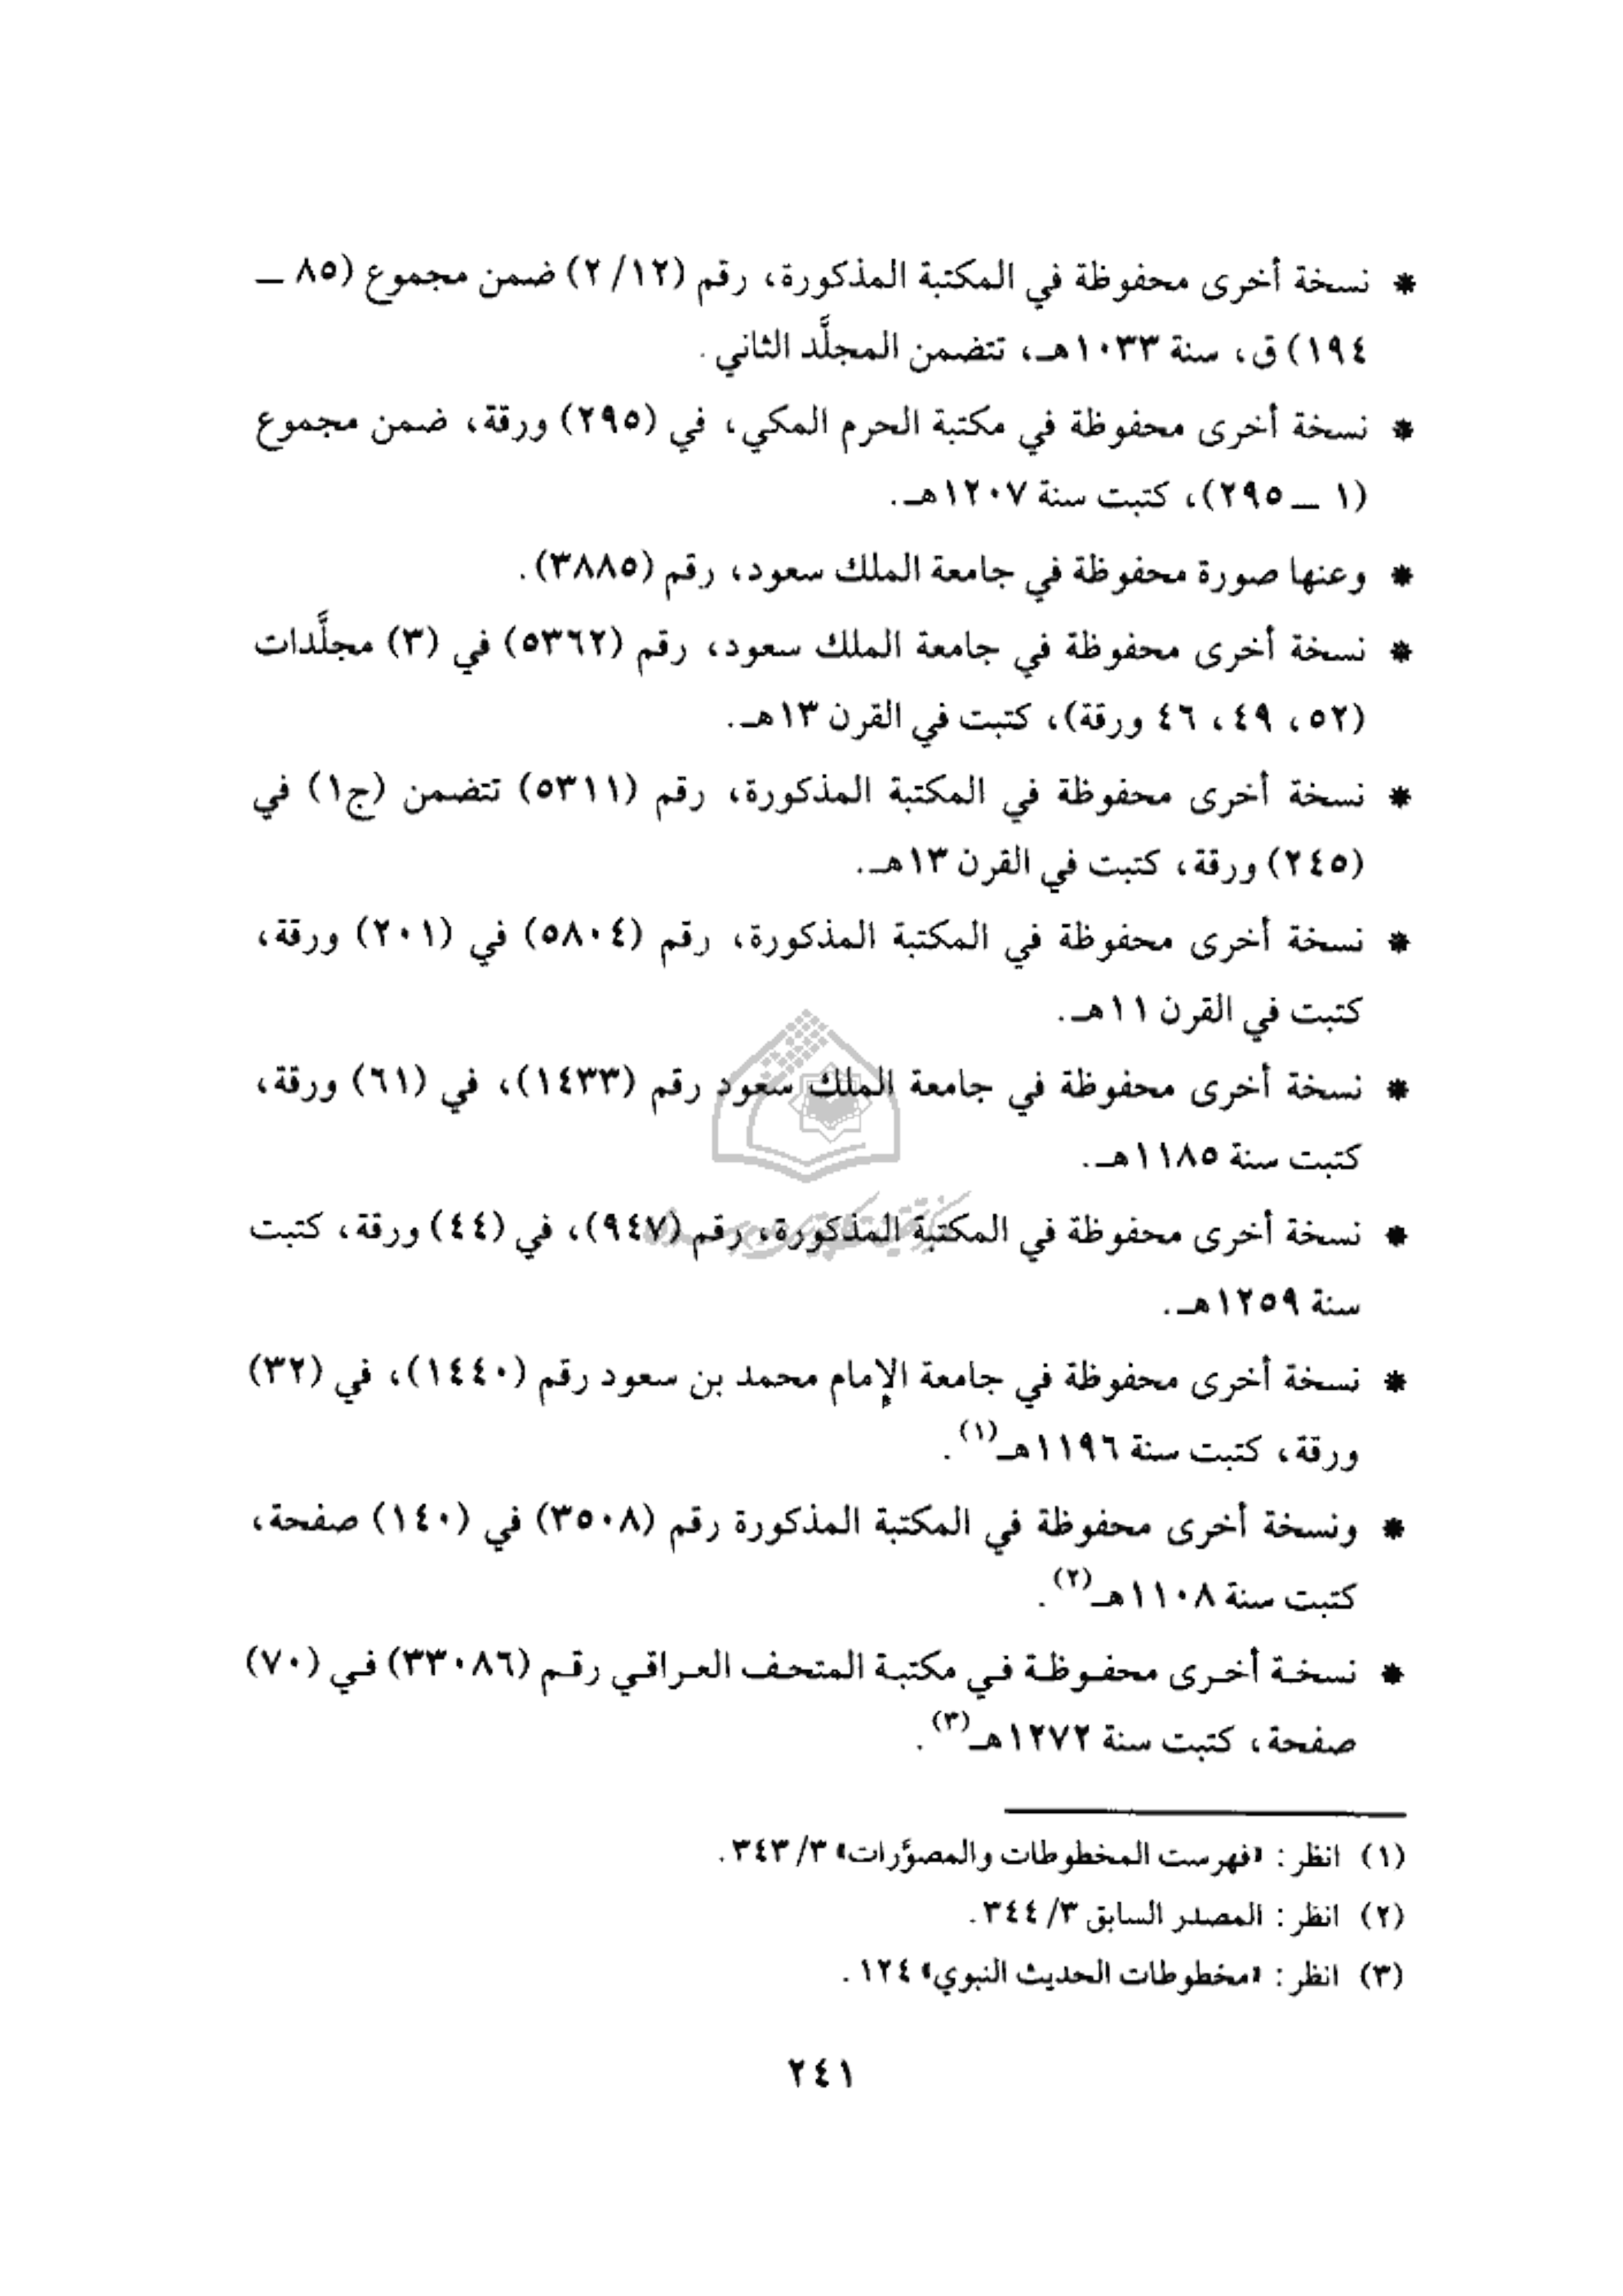 * نسخة أخرى محفوظة في المكتبة المذكورة، رقم (٢/١٢) ضمن مجموع (٨٥ ــ
١٩٤) ق، سنة ١٠٣٣هـ، تتضمن المجلَّد الثاني.
* نسخة أخرى محفوظة في مكتبة الحرم المكي، في (٢٩٥) ورقة، ضمن مجموع
(١ ــ ٢٩٥)، كتبت سنة ١٢٠٧هـ.
* وعنها صورة محفوظة في جامعة الملك سعود، رقم (٣٨٨٥).
* نسخة أخرى محفوظة في جامعة الملك سعود، رقم (٥٣٦٢) في (٣) مجلَّدات
(٥٢، ٤٩، ٤٦ ورقة)، كتبت في القرن ١٣هـ.
* نسخة أخرى محفوظة في المكتبة المذكورة، رقم (٥٣١١) تتضمن (ج١) في
(٢٤٥) ورقة، كتبت في القرن ١٣هـ.
* نسخة أخرى محفوظة في المكتبة المذكورة، رقم (٥٨٠٤) في (٢٠١) ورقة،
كتبت في القرن ١١هـ.
* نسخة أخرى محفوظة في جامعة الملك سعود رقم (١٤٣٣)، في (٦١) ورقة،
كتبت سنة ١١٨٥هـ.
* نسخة أخرى محفوظة في المكتبة المذكورة، رقم (٩٤٧)، في (٤٤) ورقة، كتبت
سنة ١٢٥٩هـ.
* نسخة أخرى محفوظة في جامعة الإمام محمد بن سعود رقم (١٤٤٠)، في (٣٢)
ورقة، كتبت سنة ١١٩٦هـ(١).
* ونسخة أخرى محفوظة في المكتبة المذكورة رقم (٣٥٠٨) في (١٤٠) صفحة،
كتبت سنة ١١٠٨هـ(٢).
* نسخة أخرى محفوظة في مكتبة المتحف العراقي رقم (٣٣٠٨٦) في (٧٠)
صفحة، كتبت سنة ١٢٧٢هـ(٣).
(١) انظر: «فهرست المخطوطات والمصوَّرات» ٣/٣٤٣.
(٢) انظر: المصدر السابق ٣/٣٤٤.
(٣) انظر: «مخطوطات الحديث النبوي» ١٢٤.
٢٤١